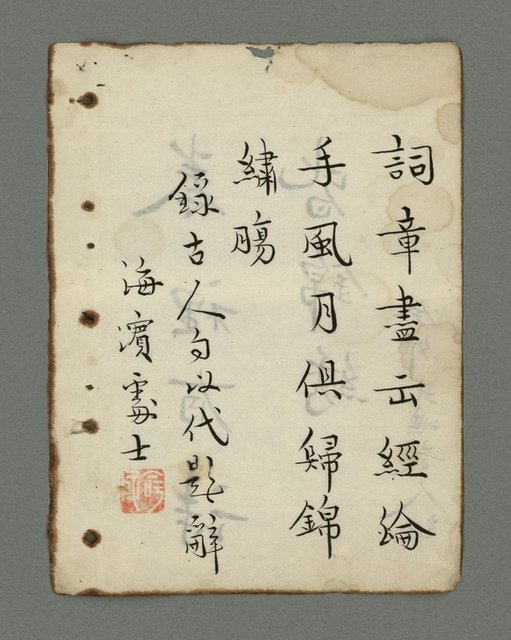 詞章盡云經綸
手風月俱歸錦
繡腸
錄古人句以代題辭
海濱處士